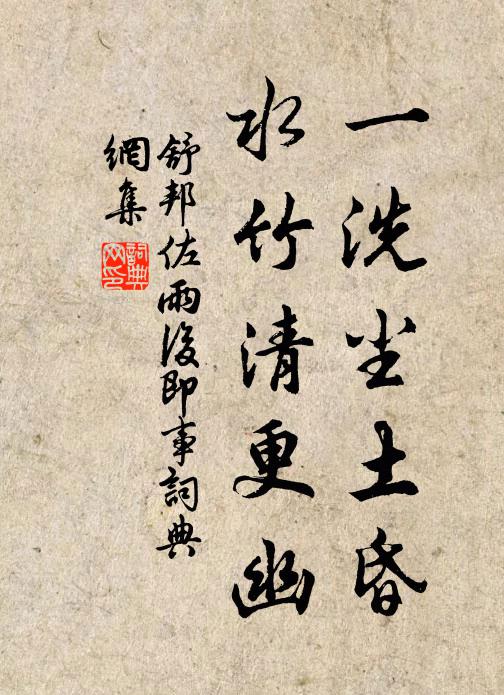 一洗尘土昏
水竹清更幽
舒邦佐雨後即事詞典
網集
詞典
网印